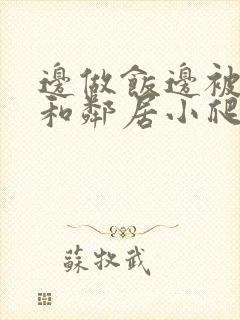 邊做飯邊被
和鄰居小爬
蘇牧武